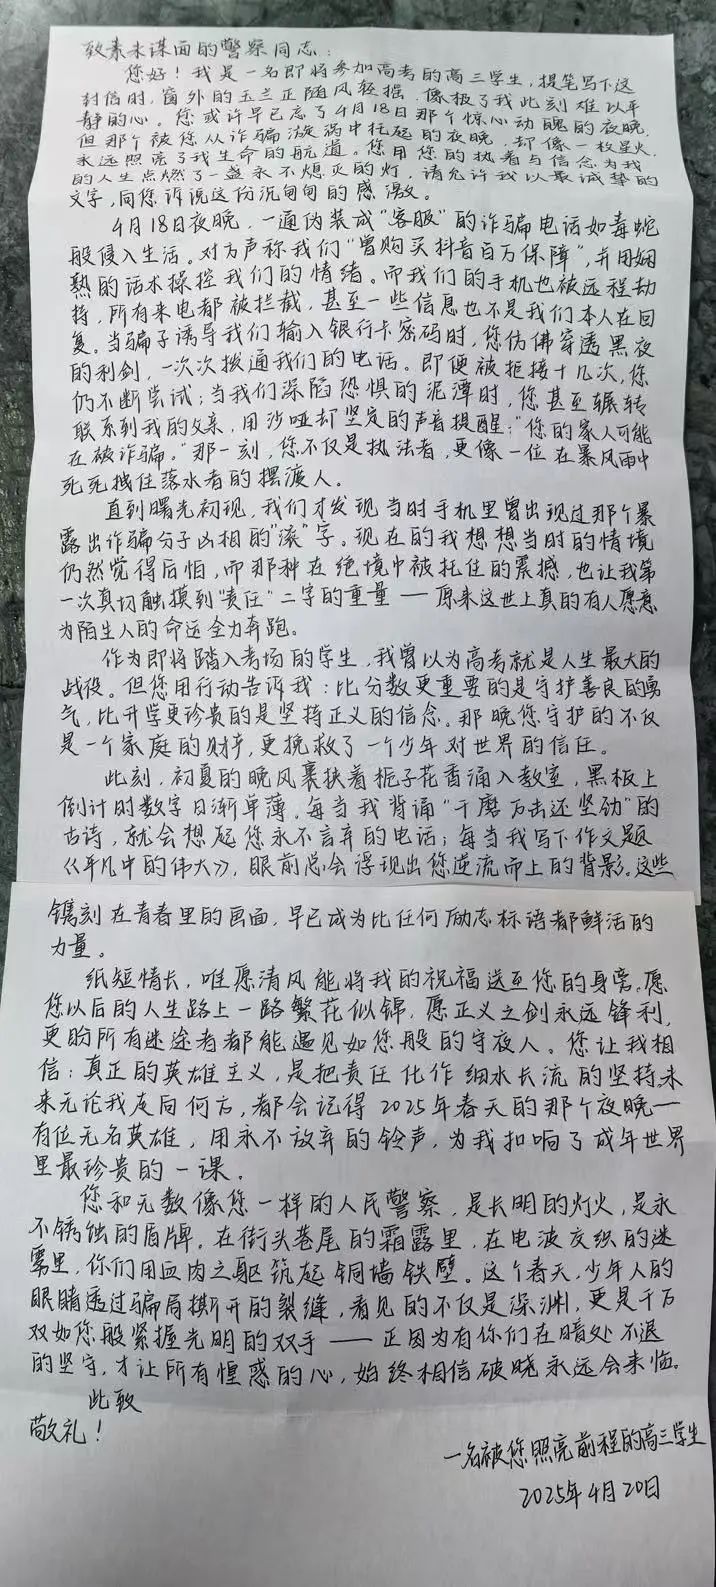 致素未谋面的警察同志：
您好！我是一名即将参加高考的高三学生，提笔写下这
封信时，窗外的玉兰正随风轻摇，像极了我此刻难以平
静的心。您或许早已忘了4月18日那个惊心动魄的夜晚，
但那个被您从诈骗漩涡中托起的夜晚，却像一枚星火，
永远照亮了我生命的航道。您用您的执着与信念为我
的人生点燃了一盏永不熄灭的灯，请允许我以最诚挚的
文字，向您诉说这份沉甸甸的感激。
4月18日夜晚，一通伪装成“客服”的诈骗电话如毒蛇
般侵入生活。对方声称我们“曾购买抖音百万保障”，并用娴
熟的话术操控我们的情绪。而我们的手机也被远程劫
持，所有来电都被拦截，甚至一些信息也不是我们本人在回
复。当骗子诱导我们输入银行卡密码时，您仿佛穿透黑夜
的利剑，一次次拨通我们的电话。即便被拒接十几次，您
仍不断尝试；当我们深陷恐惧的泥潭时，您甚至辗转
联系到我的父亲，用沙哑却坚定的声音提醒：“您的家人可能
在被诈骗。”那一刻，您不仅是执法者，更像一位在暴风雨中
死死拽住落水者的摆渡人。
直到曙光初现，我们才发现当时手机里曾出现过那个暴
露出诈骗分子凶相的“滚”字。现在的我想想当时的情境
仍然觉得后怕，而那种在绝境中被托住的震撼，也让我第
一次真切触摸到“责任”二字的重量——原来这世上真的有人愿意
为陌生人的命运全力奔跑。
作为即将踏入考场的学生，我曾以为高考就是人生最大的
战役。但您用行动告诉我：比分数更重要的是守护善良的勇
气，比升学更珍贵的是坚持正义的信念。那晚您守护的不仅
是一个家庭的财产，更挽救了一个少年对世界的信任。
此刻，初夏的晚风裹挟着栀子花香涌入教室，黑板上
倒计时数字日渐单薄。每当我背诵“千磨万击还坚劲”的
古诗，就会想起您永不言弃的电话；每当我写下作文题
《平凡中的伟大》，眼前总会浮现出您逆流而上的背影。这些
镌刻在青春里的画面，早已成为比任何励志标语都鲜活的
力量。
纸短情长，唯愿清风能将我的祝福送至您的身旁。愿
您以后的人生路上一路繁花似锦，愿正义之剑永远锋利，
更盼所有迷途者都能遇见如您般的守夜人。您让我相
信：真正的英雄主义，是把责任化作细水长流的坚持未
来无论我走向何方，都会记得2025年春天的那个夜晚—
有位无名英雄，用永不放弃的铃声，为我扣响了成年世界
里最珍贵的一课。
您和无数像您一样的人民警察，是长明的灯火，是永
不锈蚀的盾牌。在街头巷尾的霜露里，在电波交织的迷
雾里，你们用血肉之躯筑起铜墙铁壁。这个春天，少年人的
眼睛透过骗局撕开的裂缝，看见的不仅是深渊，更是千万
双如您般紧握光明的双手——正因为有你们在暗处不退
的坚守，才让所有惶惑的心，始终相信破晓永远会来临。
此致
敬礼！
一名被您照亮前程的高三学生
2025年4月20日